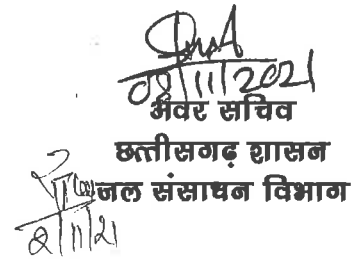 08/11/2021
अवर सचिव
छत्तीसगढ़ शासन
जल संसाधन विभाग
8/11/21